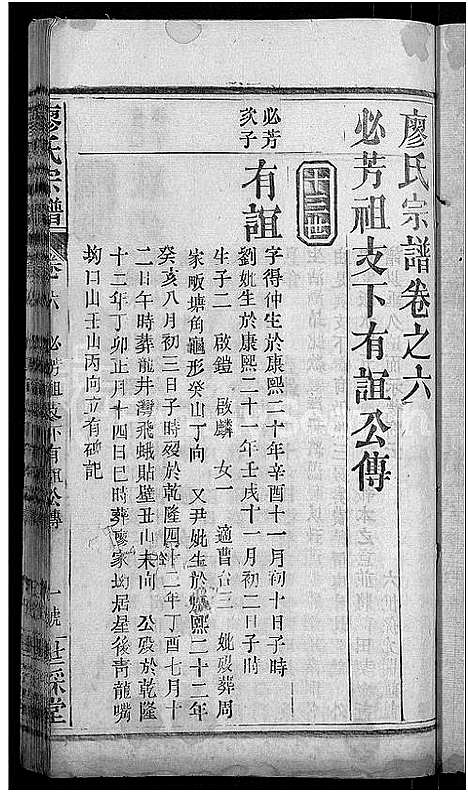 廖氏宗譜卷之六
必芳祖支下有誼公傳
十三世
必芳
次子
有誼
字得仲生於康熙二十年辛酉十一月初十日子時
劉妣生於康熙二十一年壬戌十一月初二日子時
生子二 啟鎧 啟麟 女一 適曹台三 妣歿葬周
家畈塘角龜形癸山丁向 又尹妣生於康熙二十二年
癸亥八月初三日子時歿於乾隆四十二年丁酉七月十
二日午時葬龍井灣飛蛾貼壁丑山未向 公歿於乾隆
十二年丁卯正月十四日巳時葬廖家坳居星後青龍嘴
坳口山壬山丙向立有碑記
廖氏宗譜
卷六 必芳祖支下有誼公傳
一號
世綵堂